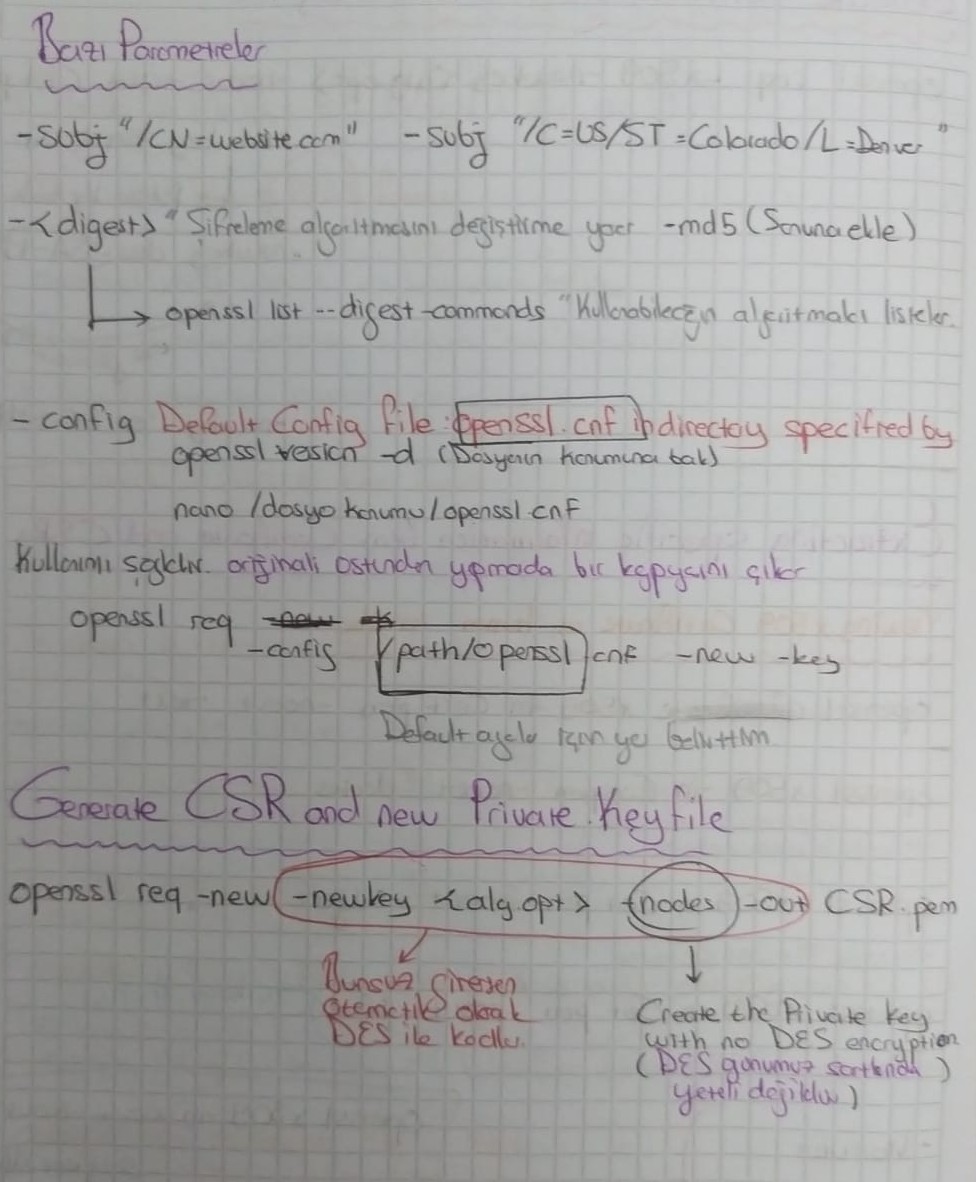 Bazı Parametreler
-subj "/CN=website.com" -subj "/C=US/ST=Colorado/L=Denver"
-<digest> "Şifreleme algoritmasını değiştirme yarar -md5 (Sonuna ekle)
openssl list --digest-commands "Kullanabileceğin algoritmaları listeler.
-config Default Config file: openssl.cnf in directory specified by
openssl version -d (Dosyanın konumuna bak)
nano /dosya konumu/openssl.cnf
Kullanımı şekli. orijinali üstünden yapmada bir kopyasını çıkar
openssl req
-config /path/openssl.cnf -new -key
Default ayarla için ya belirttim
Generate CSR and new Private Key file
openssl req -new -newkey <alg opt> -nodes -out CSR.pem
Bunsuz girersen
otomatik olarak
DES ile kodlar.
Create the Private key
with no DES encryption
(DES günümüz şartlarında)
yeterli değildir)